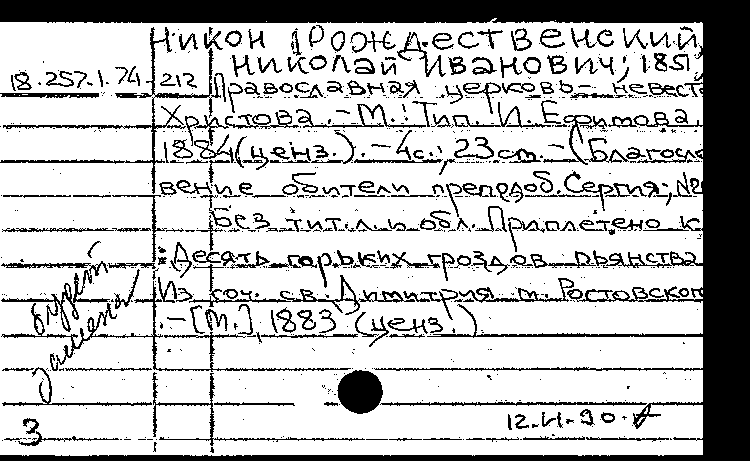 Никон (Рождественский,
Николай Иванович; 1851
18.257.1.74-212
Православная церковь - невеста
Христова. - М.: Тип. И. Ефимова,
1884 (ценз.). - 4с.; 23 см. - (Благосло
вение обители преподоб. Сергия; №
Без тит.л. и обл. Приплетено к
: Десять горьких гроздов пьянства
Из соч. св. Димитрия м. Ростовског
. - [М.], 1883 (ценз.)
будет
замена
3
12.VI-90.